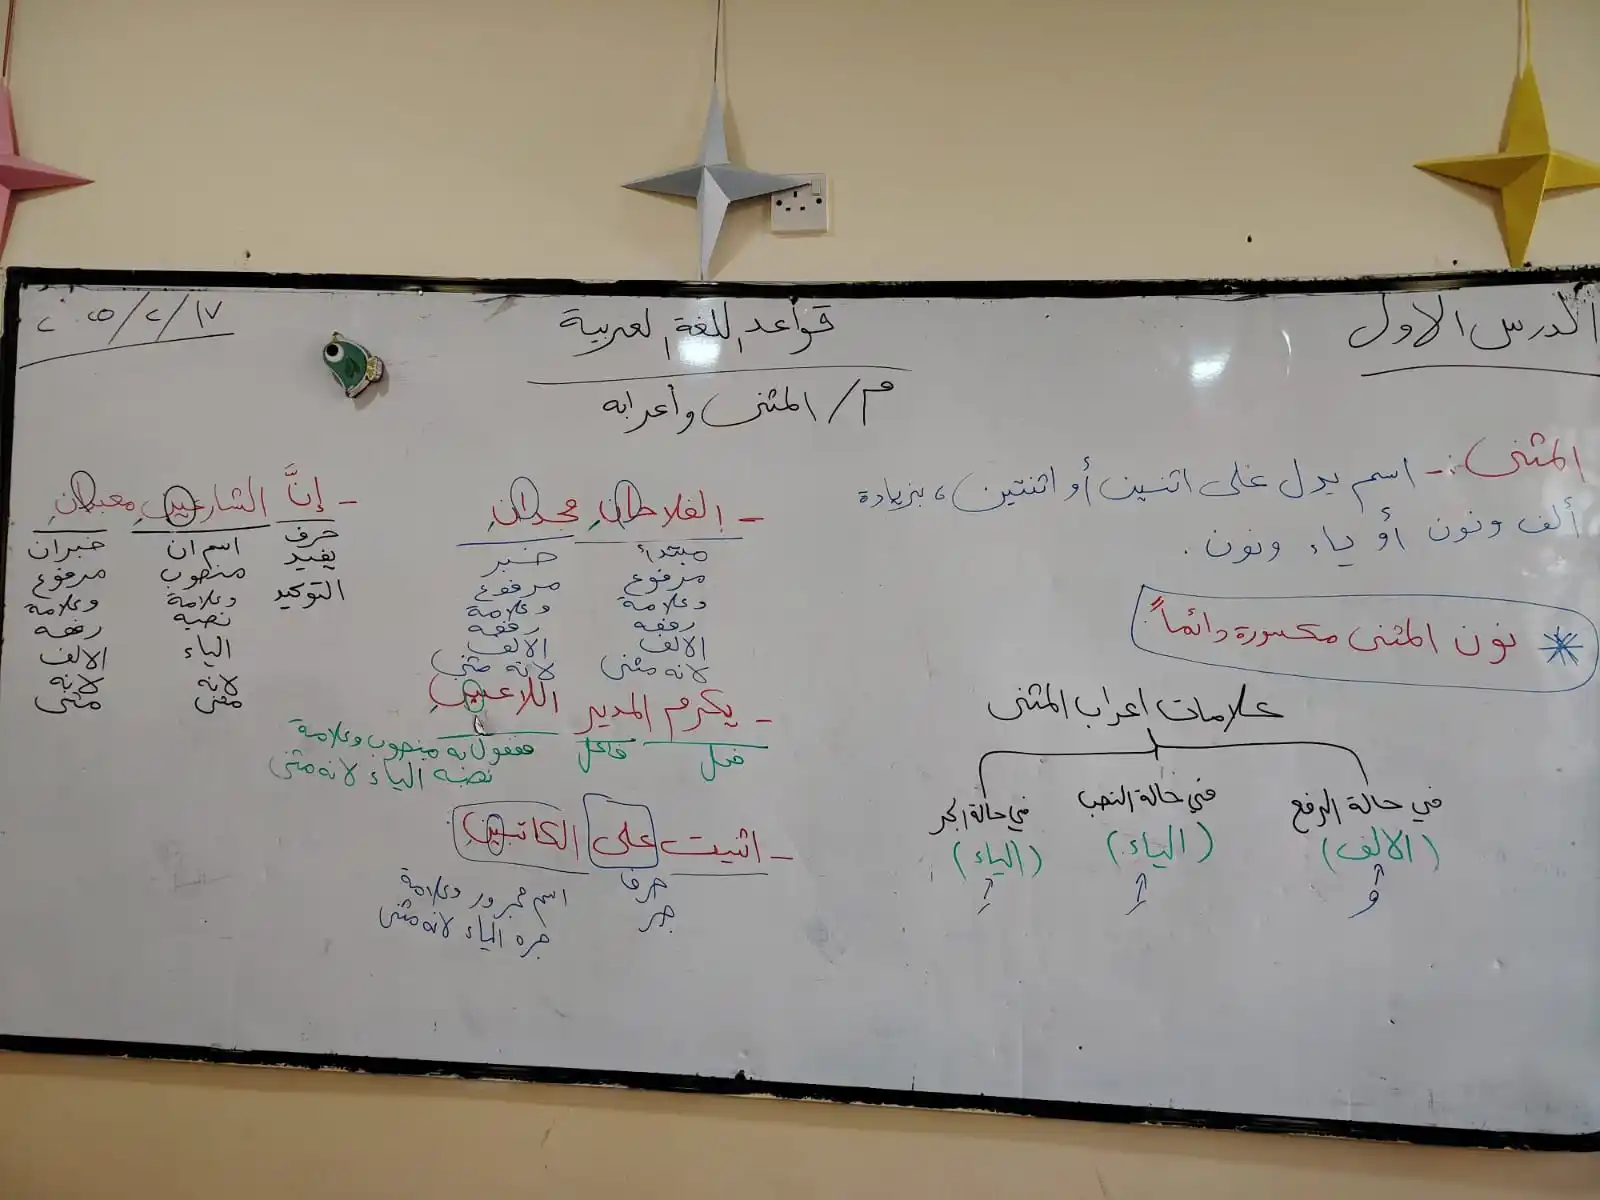 الدرس الاول
قواعد اللغة العربية
٢٠٢٥/٢/١٧
م/ المثنى وأعرابه
المثنى :- اسم يدل على اثنين أو اثنتين ، بزيادة
ألف ونون أو ياء ونون .
* نون المثنى مكسورة دائماً
علامات اعراب المثنى
في حالة الرفع
(الالف)
في حالة النصب
(الياء)
في حالة الجر
(الياء)
- الفلاحانِ مجدانِ
مبتدأ
مرفوع
وعلامة
رفعه
الالف
لانه مثنى
خبر
مرفوع
وعلامة
رفعه
الالف
لانه مثنى
- يكرم المدير اللاعبينِ
فعل
فاعل
مفعول به منصوب وعلامة
نصبه الياء لانه مثنى
- اثنيت على الكاتبينِ
حرف
جر
اسم مجرور وعلامة
جره الياء لانه مثنى
- إنَّ الشارعينِ معبدانِ
حرف
يفيد
التوكيد
اسم ان
منصوب
وعلامة
نصبه
الياء
لانه
مثنى
خبر ان
مرفوع
وعلامة
رفعه
الالف
لانه
مثنى